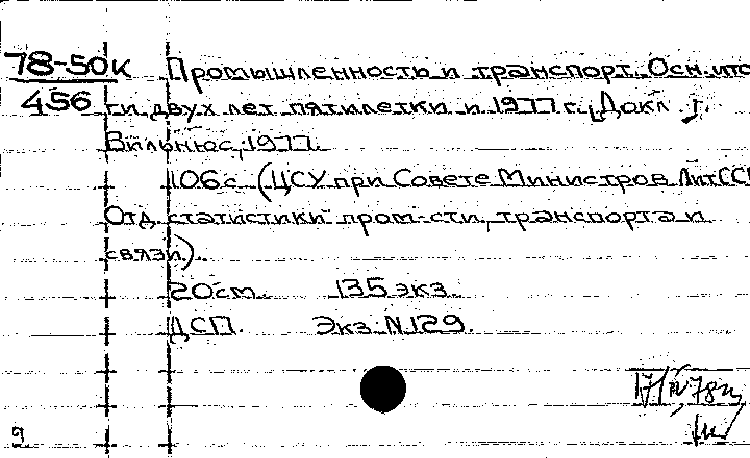 78-50к Промышленность и транспорт. Осн. ито
456 ги двух лет пятилетки и 1977 г. (Докл.).
Вильнюс, 1977.
106 с. (ЦСУ при Совете Министров ЛитССР
Отд. статистики пром-сти, транспорта и
связи).
20см. 135 экз.
ДСП. Экз. N 129.
17/IV 78г.
9